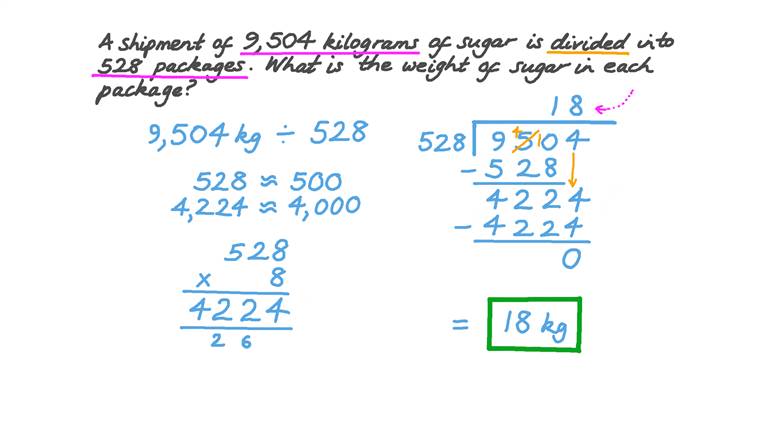 A shipment of 9,504 kilograms of sugar is divided into
528 packages. What is the weight of sugar in each
package?
9,504 kg ÷ 528
528 ≈ 500
4,224 ≈ 4,000
528
x 8
4224
2 6
18
528 9504
4 1
- 528
4224
- 4224
0
= 18 kg